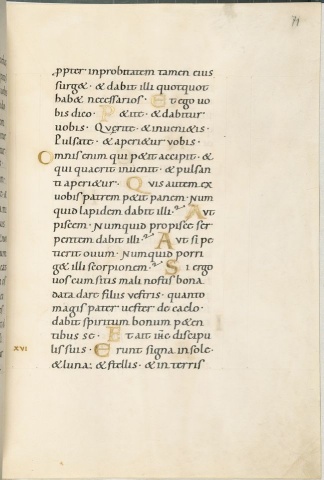 71
ꝓpter inprobitatem tamen eius
surg& · & dabit illi quotquot
hab& necessarios · Et ego uo
bis dico · P&ite · & dabitur
uobis · Querite · & inueni&is ·
Pulsate · & aperi&ur uobis ·
Omnis enim qui p&it accipit · &
qui quaerit inuenit · & pulsan
ti aperi&ur · Quis autem ex
uobis patrem p&it panem · Num
quid lapidem dabit illi · Aut
piscem · Numquid pro pisce ser
pentem dabit illi · Aut si pe
tierit ouum · Numquid porri
g& illi scorpionem · Si ergo
uos cum sitis mali nostis bona
data dare filiis uestris · quanto
magis pater uester de caelo ·
dabit spiritum bonum p&en
tibus se · Et ait ihs discipu
XVI lis suis · Erunt signa in sole ·
& luna · & stellis · & in terris